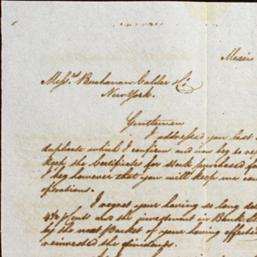 Mexic
Messrs. Buchanan Calder &
New York.
Gentlemen
I addressed you last
duplicate which I confirm and now beg to re
keep the Certificates for Stock purchased fo
I beg however that you will keep me
I regret your having so long de
pCents and the investment in Bank S
by the next Packet of your having effect
reinvested the